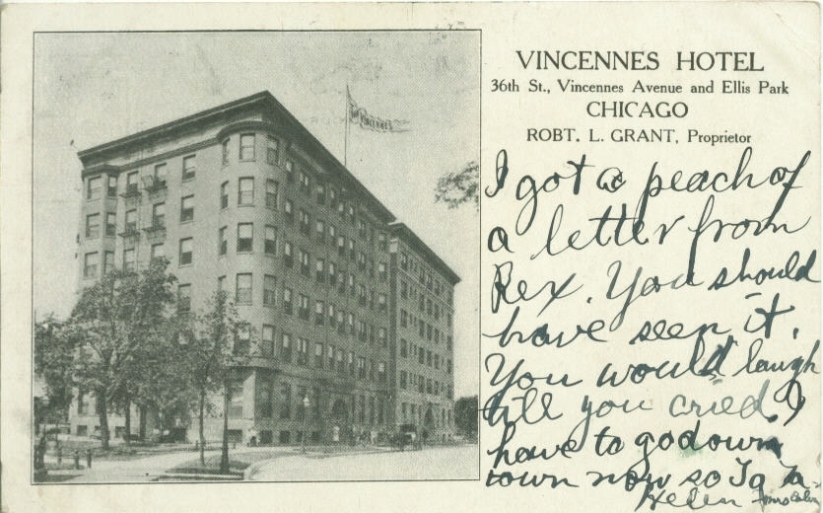 VINCENNES HOTEL
36th St., Vincennes Avenue and Ellis Park
CHICAGO
ROBT. L. GRANT, Proprietor
I got a peach of
a letter from
Rex. You should
have seen it.
You would laugh
till you cried. I
have to go down
town now so Ta Ta
Helen